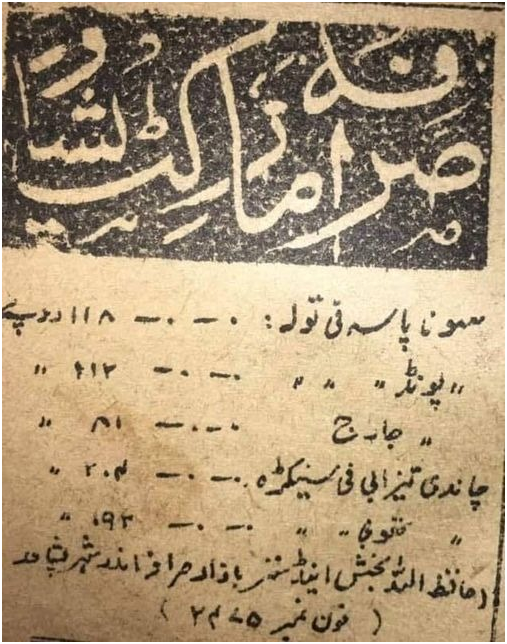 صرافہ مارکیٹ پشاور
سونا پاسہ فی تولہ : ۰-۰- ۱۱۸ روپے
〃 پونڈ 〃 〃 ۰-۰- 〃
〃 جارج ۰-۰- ۸۱ 〃
چاندی تیزابی فی سینکڑہ ۰-۰- ۲۰۴ 〃
〃 〃 〃 ۰-۰- 〃
(حافظ اللہ بخش اینڈ سنز بازار صرافہ اندر شہر پشاور
(فون نمبر ۲۴۷۵)